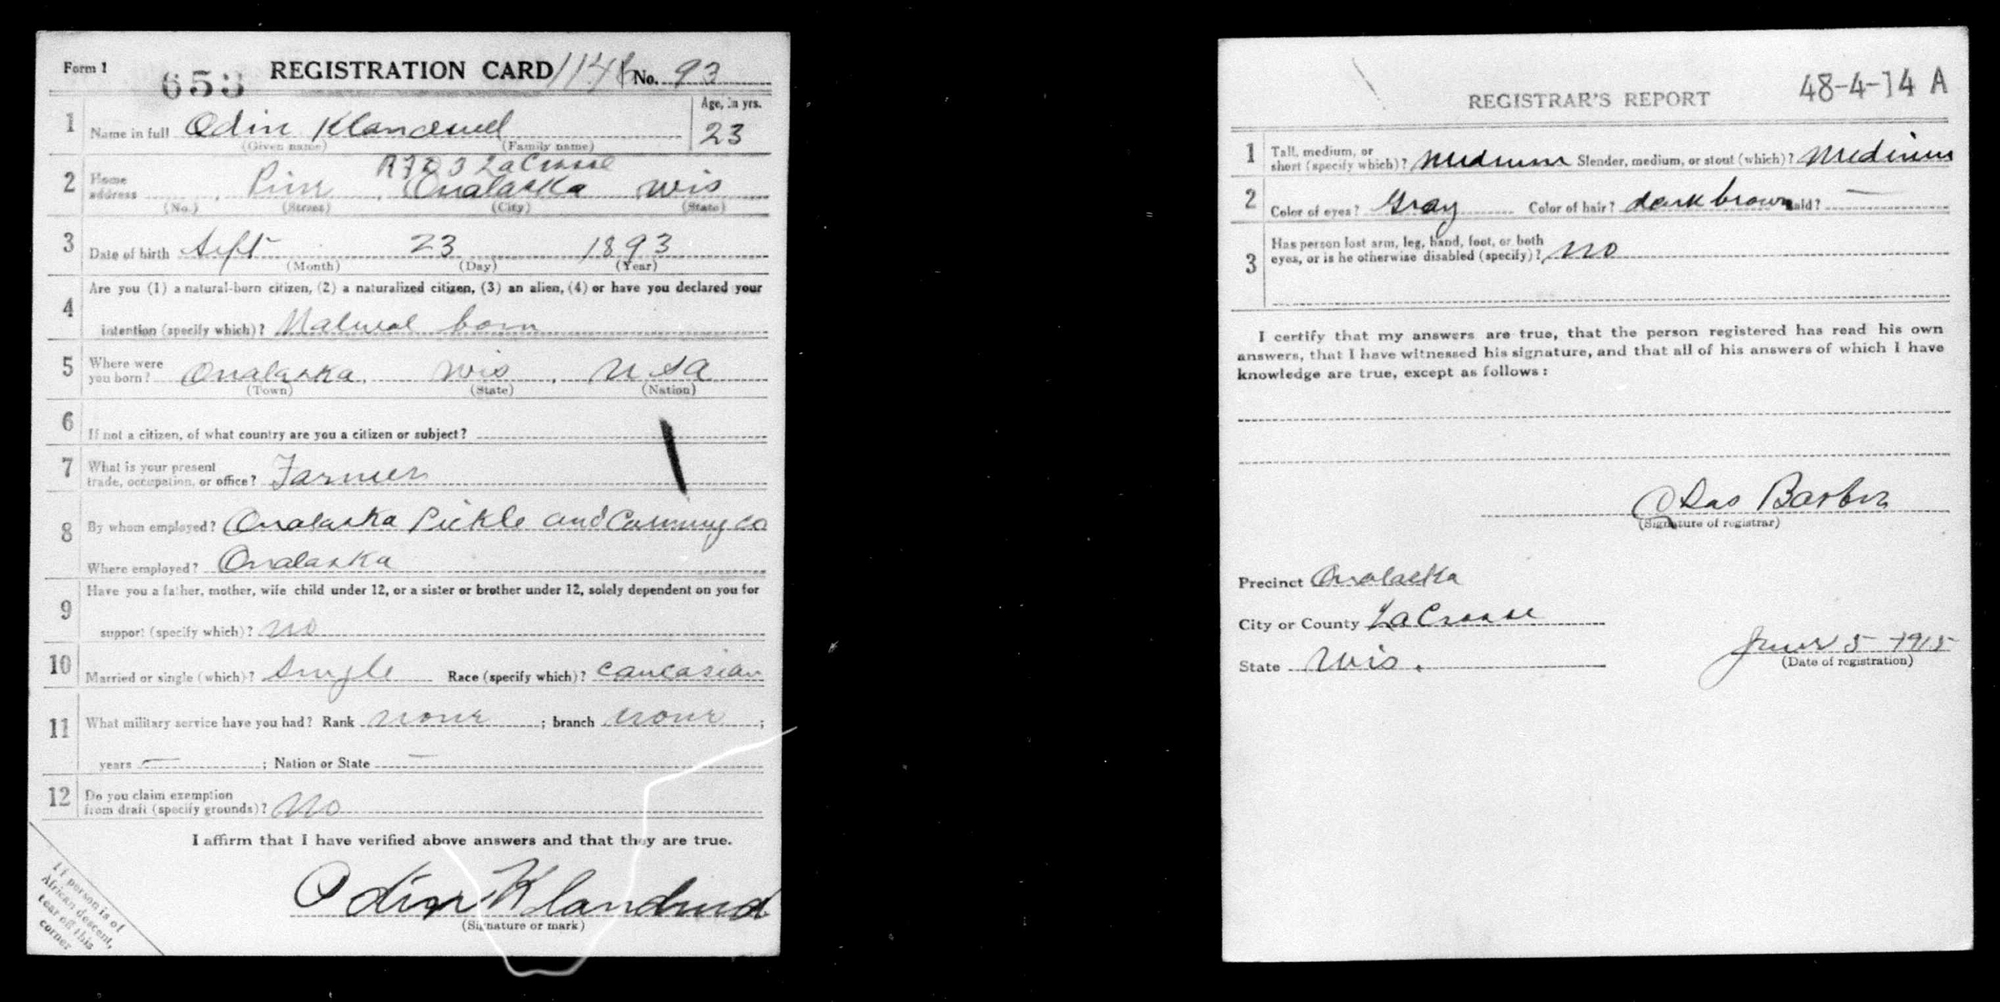 Form 1 653 REGISTRATION CARD 1148 No. 93
1 Name in full Odin Age, in yrs. 23
(Given name) (Family name)
RFD 3 LaCrosse
2 Home address Onalaska Wis
(No.) (Street) (City) (State)
3 Date of birth Sept 23 1893
(Month) (Day) (Year)
4 Are you (1) a natural-born citizen, (2) a naturalized citizen, (3) an alien, (4) or have you declared your
intention (specify which)? Natural born
5 Where were you born? Onalaska, Wis, USA
(Town) (State) (Nation)
6 If not a citizen, of what country are you a citizen or subject?
7 What is your present trade, occupation, or office? Farmer
8 By whom employed? Onalaska Pickle and Canning Co
Where employed? Onalaska
9 Have you a father, mother, wife child under 12, or a sister or brother under 12, solely dependent on you for
support (specify which)? no
10 Married or single (which)? Single Race (specify which)? Caucasian
11 What military service have you had? Rank none ; branch none ;
years — ; Nation or State —
12 Do you claim exemption from draft (specify grounds)? No
I affirm that I have verified above answers and that they are true.
Odin
(Signature or mark)
If person is of
African descent,
tear off this
corner
REGISTRAR'S REPORT 48-4-14 A
1 Tall, medium, or short (specify which)? medium Slender, medium, or stout (which)? Medium
2 Color of eyes? Gray Color of hair? dark brown Bald? —
3 Has person lost arm, leg, hand, foot, or both
eyes, or is he otherwise disabled (specify)? no
I certify that my answers are true, that the person registered has read his own
answers, that I have witnessed his signature, and that all of his answers of which I have
knowledge are true, except as follows:
Chas
(Signature of registrar)
Precinct Onalaska
City or County LaCrosse
State Wis.
June 5
(Date of registration)